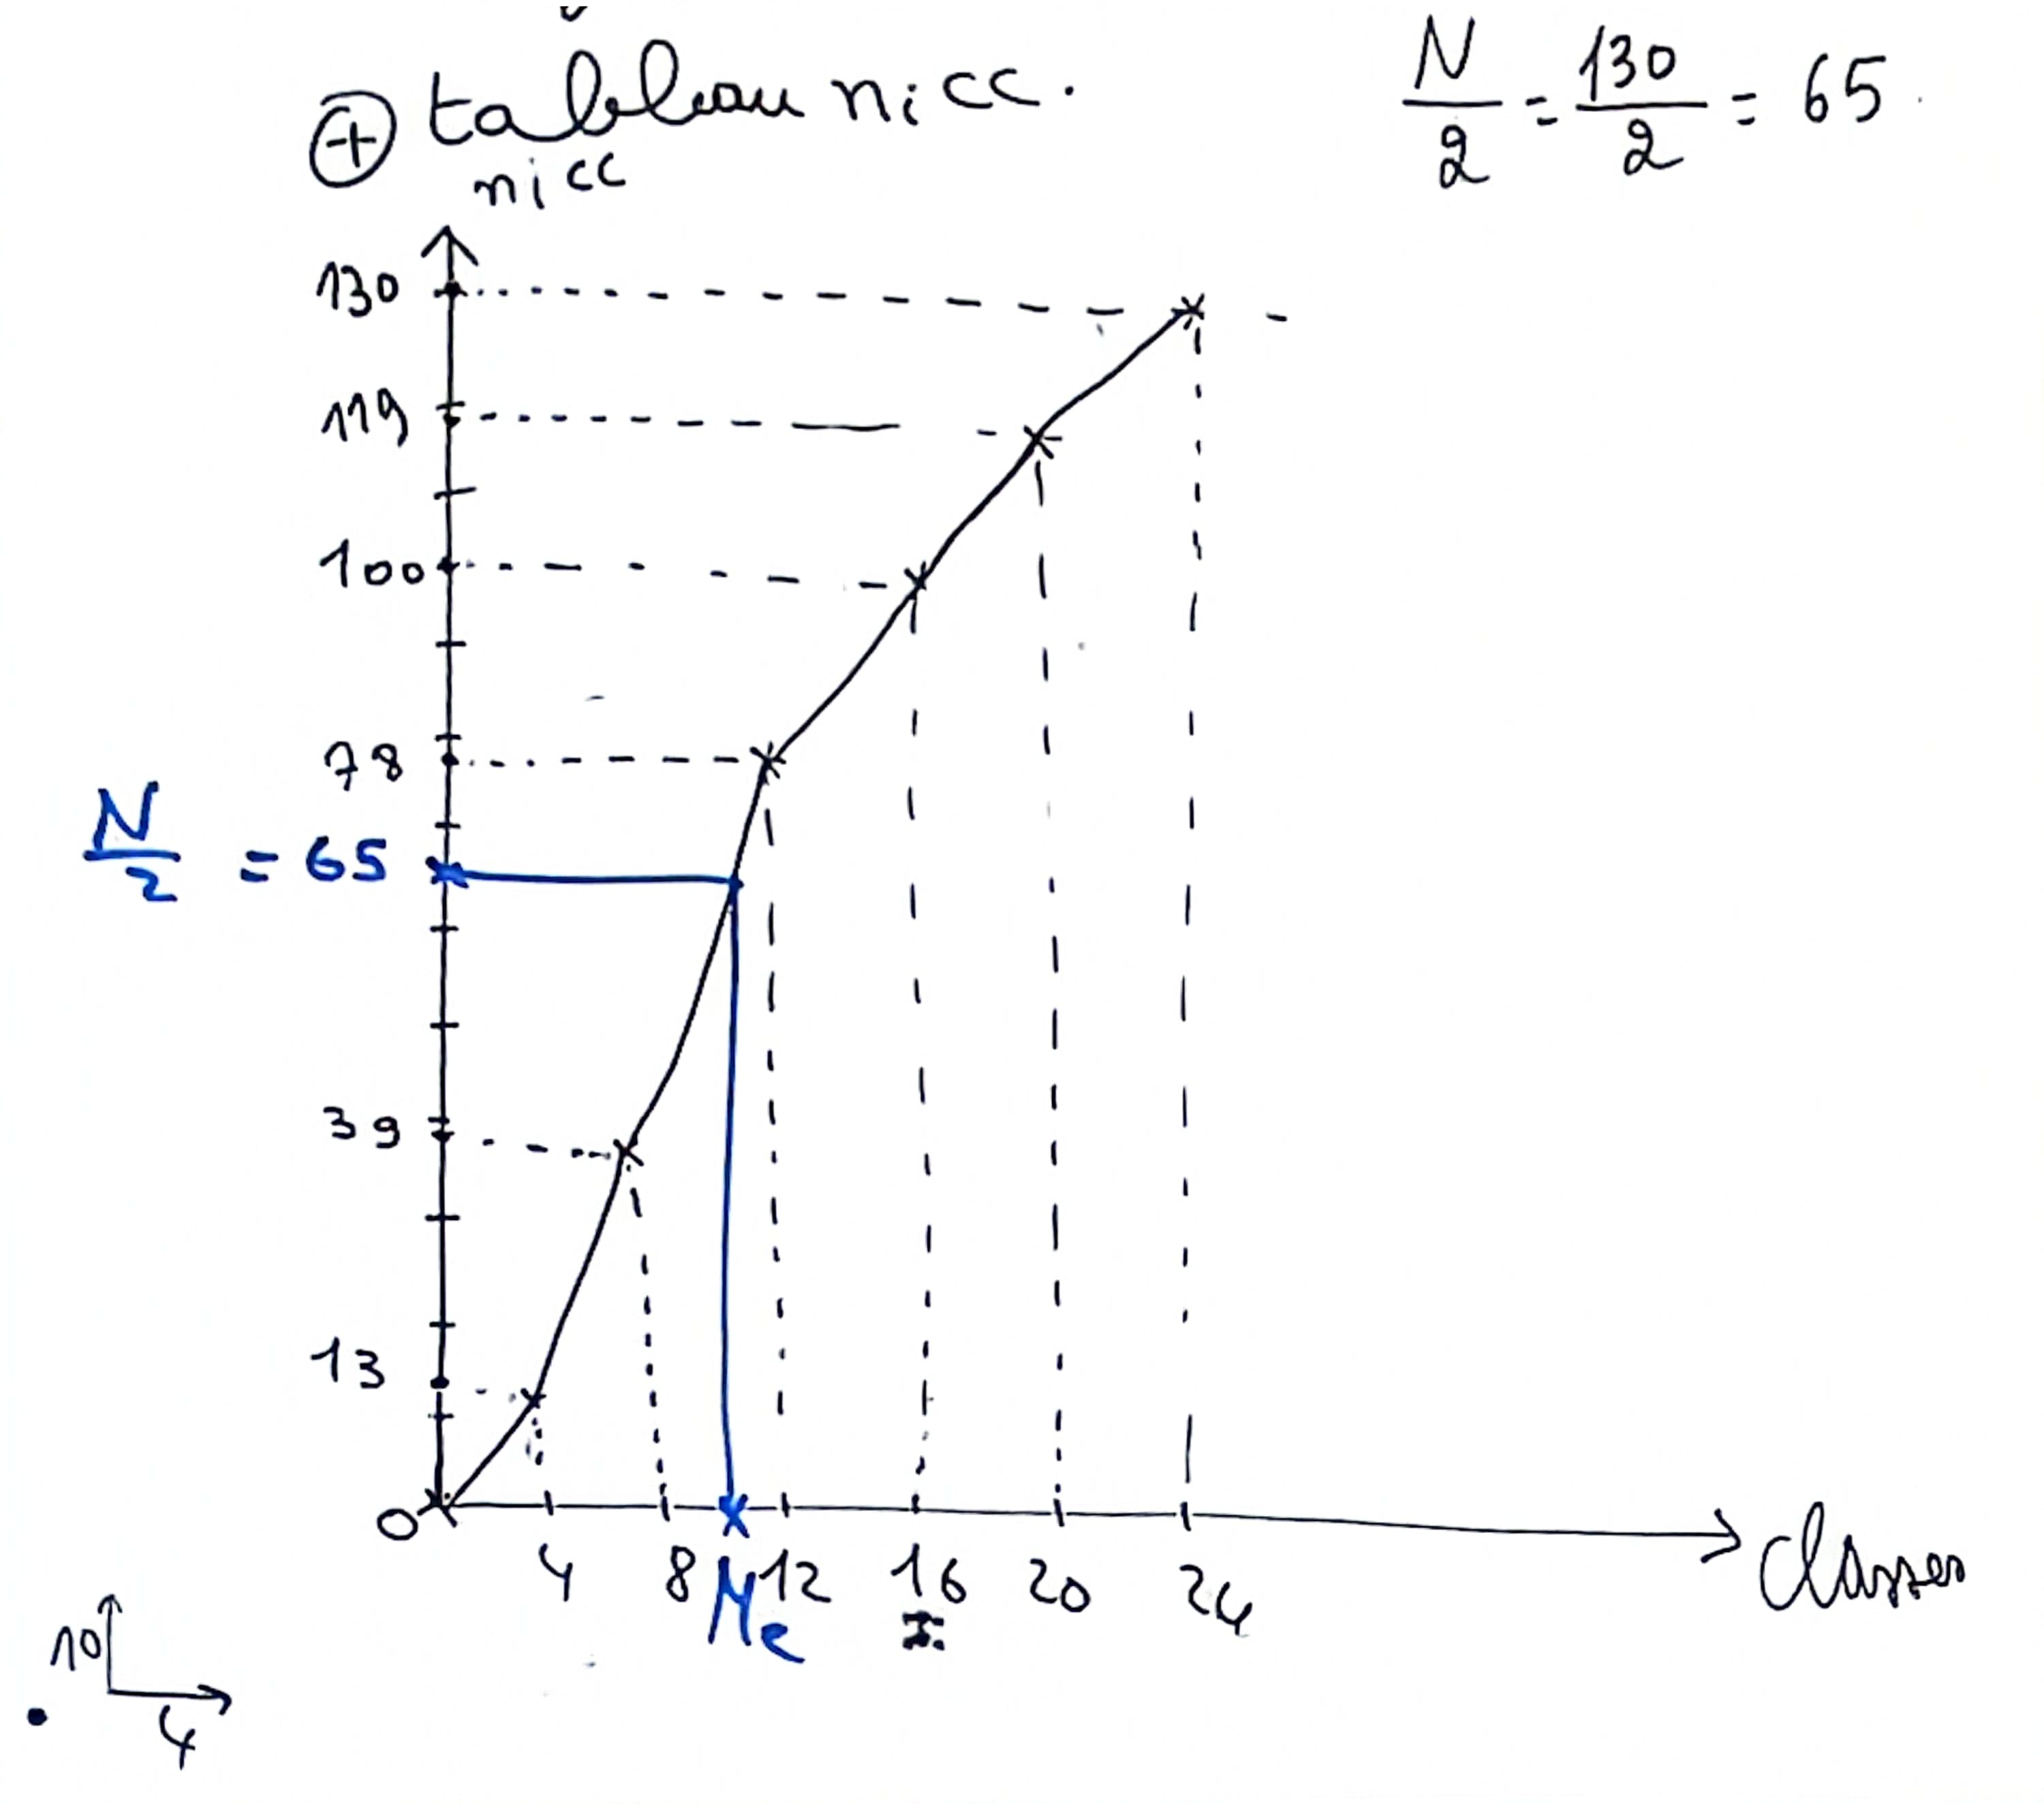 ⊕ tableau nicc.
N/2 = 130/2 = 65
nicc
130
119
100
78
N/2 = 65
39
13
0
4 8 Me 12 16 20 24
classes
10
4